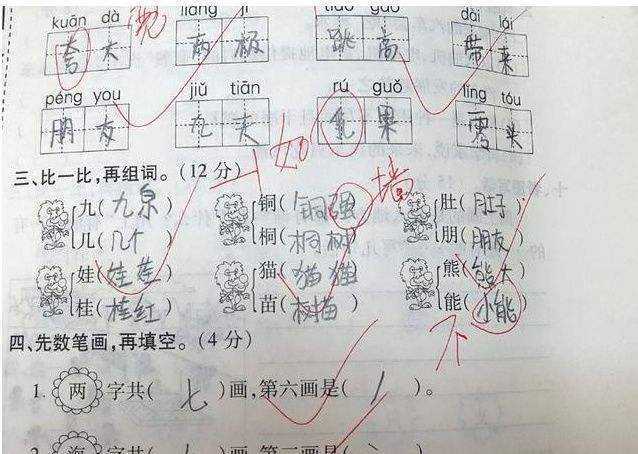 kuān dà liǎng jí tiào gāo dài lái
夸 大 两 极 跳 高 带 来
宽
péng you jiǔ tiān rú guǒ líng tóu
朋 友 九 天 果 零 头
如
三、比一比,再组词。(12分)
九(九泉) 铜(铜强) 肚(肚子)
墙
儿(几个) 桐(桐树) 朋(朋友)
娃(娃娃) 猫(猫猫) 熊(熊大)
桂(桂红) 苗(树苗) 能(小能)
不
四、先数笔画,再填空。(4分)
1. 两 字共( 七 )画,第六画是( )。
2. 海 字共( )画,第二画是(